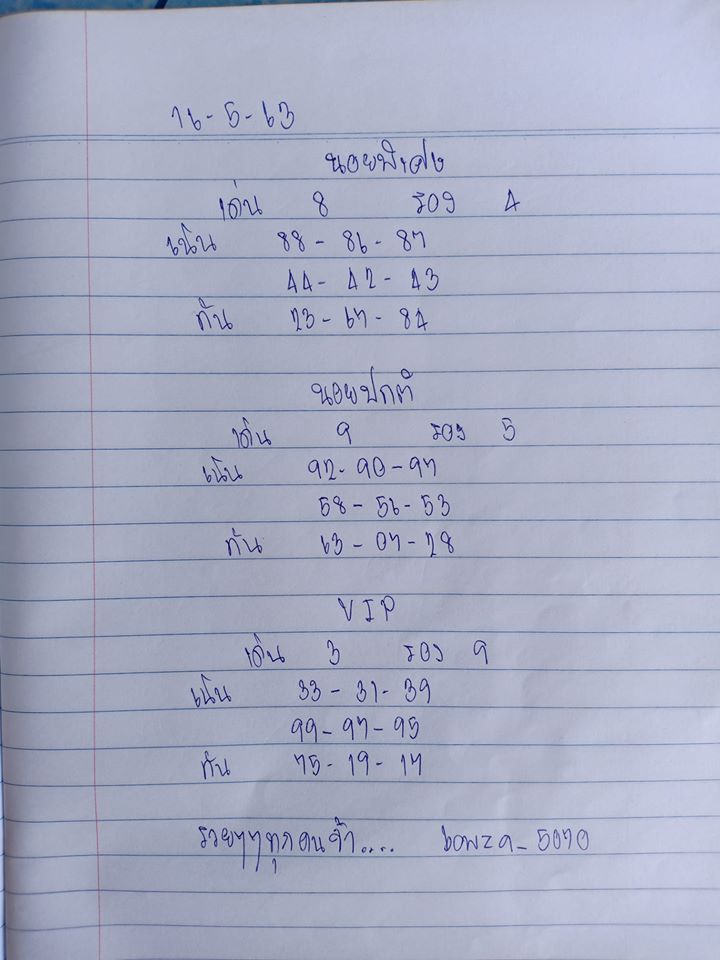 16-5-63
นอยพิเศษ
เด่น 8 รอง 4
เน้น 88-86-87
44-42-43
กัน 23-67-84
นอยปกติ
เด่น 9 รอง 5
เน้น 92-90-97
58-56-53
กัน 63-07-28
VIP
เด่น 3 รอง 9
เน้น 33-31-39
99-97-95
กัน 75-19-17
รวยๆๆทุกคนจ้า.... bowza_5070